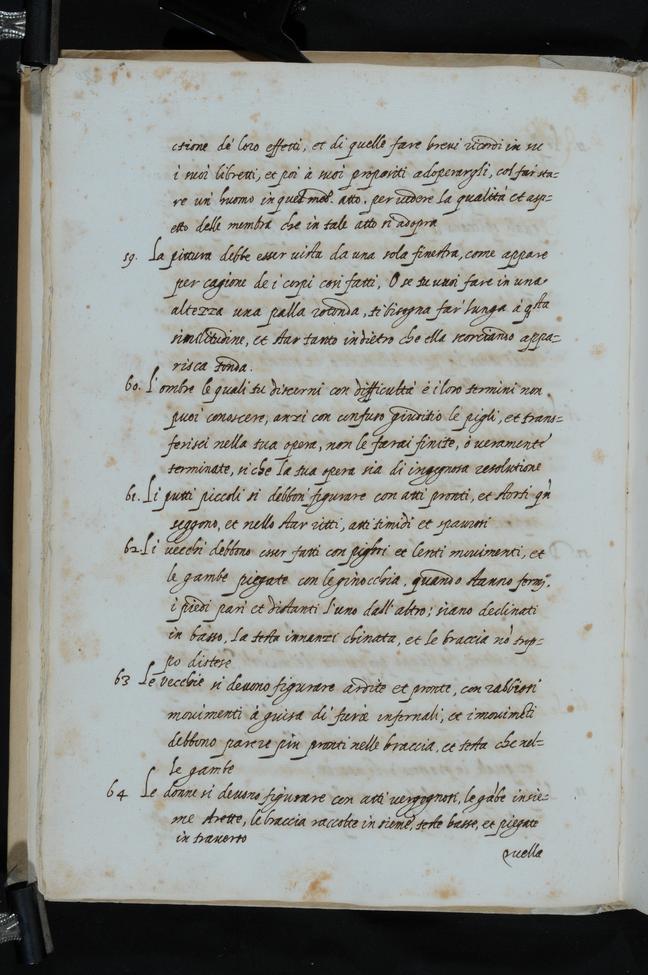 ctione de' loro effetti, et di quelle fare breui ricordi in su
i suoi libretti, et poi à suoi propositi adoperargli, col far sta=
re un' huomo in quel med.º atto, per uedere la qualità et asp=
etto delle membra che in tale atto si adopra
59. La pittura debbe esser uista da una sola finestra, come appare
per cagione de i corpi cosi fatti, O se tu uuoi fare in una
altezza una palla rotonda, ti bisogna far' lunga à qsta
similitudine, et star tanto indietro che ella scorciando appa=
risca tonda.
60. L'ombre le quali tu discerni con difficultà è i loro termini non
puoi conoscere, anzi con confuso giuditio le pigli, et trans=
ferisci nella tua opera, non le farai finite, ò ueramente
terminate, si che la tua opera sia di ingegnosa resolutione
61. Li putti piccoli si debbon figurare con atti pronti, et storti qn̄
seggono, et nello star ritti, atti timidi et paurosi
62. Li uecchi debbono esser fatti con pighri et lenti mouimenti, et
le gambe piegate con le ginocchia, quando stanno fermj,
i piedi pari et distanti l'uno dall' altro; siano declinati
in basso, la testa innanzi chinata, et le braccia nō trop=
po distese
63 Le uecchie si deuono figurare ardite et pronte, con rabbiosi
mouimenti à guisa di furie infernali, et i mouimēti
debbono parere piu pronti nelle braccia, et testa che nel=
le gambe
64 Le donne si deuono figurare con atti uergognosi, le gābe insie=
me strette, le braccia raccolte insieme, teste basse, et piegate
in trauerso
Quella